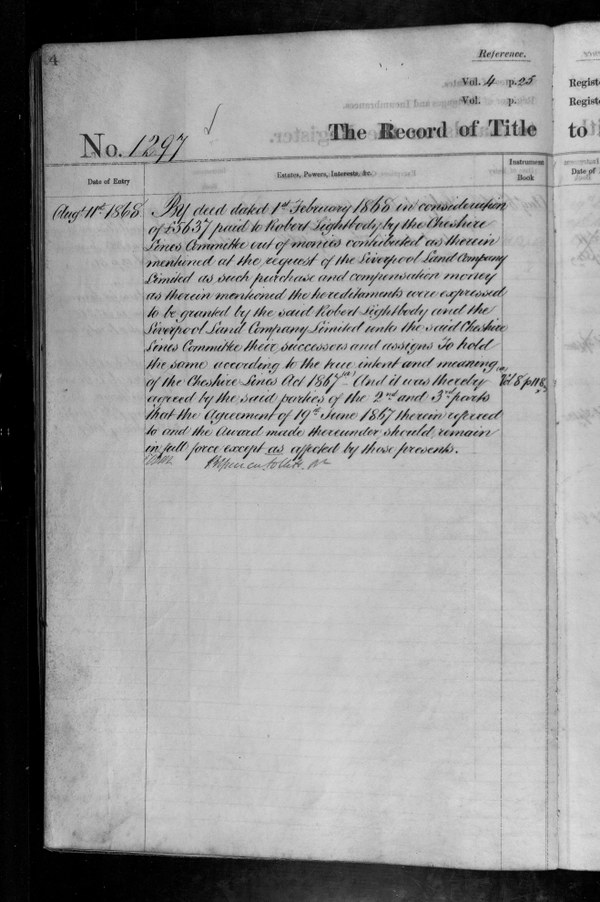 4
Reference.
Vol. 4 p. 25
Vol. p.
No. 1297
The Record of Title
to
Registe
Registe
Date of Entry
Estates, Powers, Interests, &c.
Instrument
Book
Date of
Augt 11th 1868
By deed dated 1st February 1868 in consideration
of £3637 paid to Robert Lightbody by the Cheshire
Lines Committee out of monies contributed as therein
mentioned at the request of the Liverpool Land Company
Limited as such purchase and compensation money
as therein mentioned the hereditaments were expressed
to be granted by the said Robert Lightbody and the
Liverpool Land Company Limited unto the said Cheshire
Lines Committee their successors and assigns To hold
the same according to the true intent and meaning
of the Cheshire Lines Act 1867 And it was thereby
Vol 8 p
agreed by the said parties of the 2nd and 3rd parts
that the Agreement of 19th June 1867 therein referred
to and the Award made thereunder should remain
in full force except as affected by those presents.